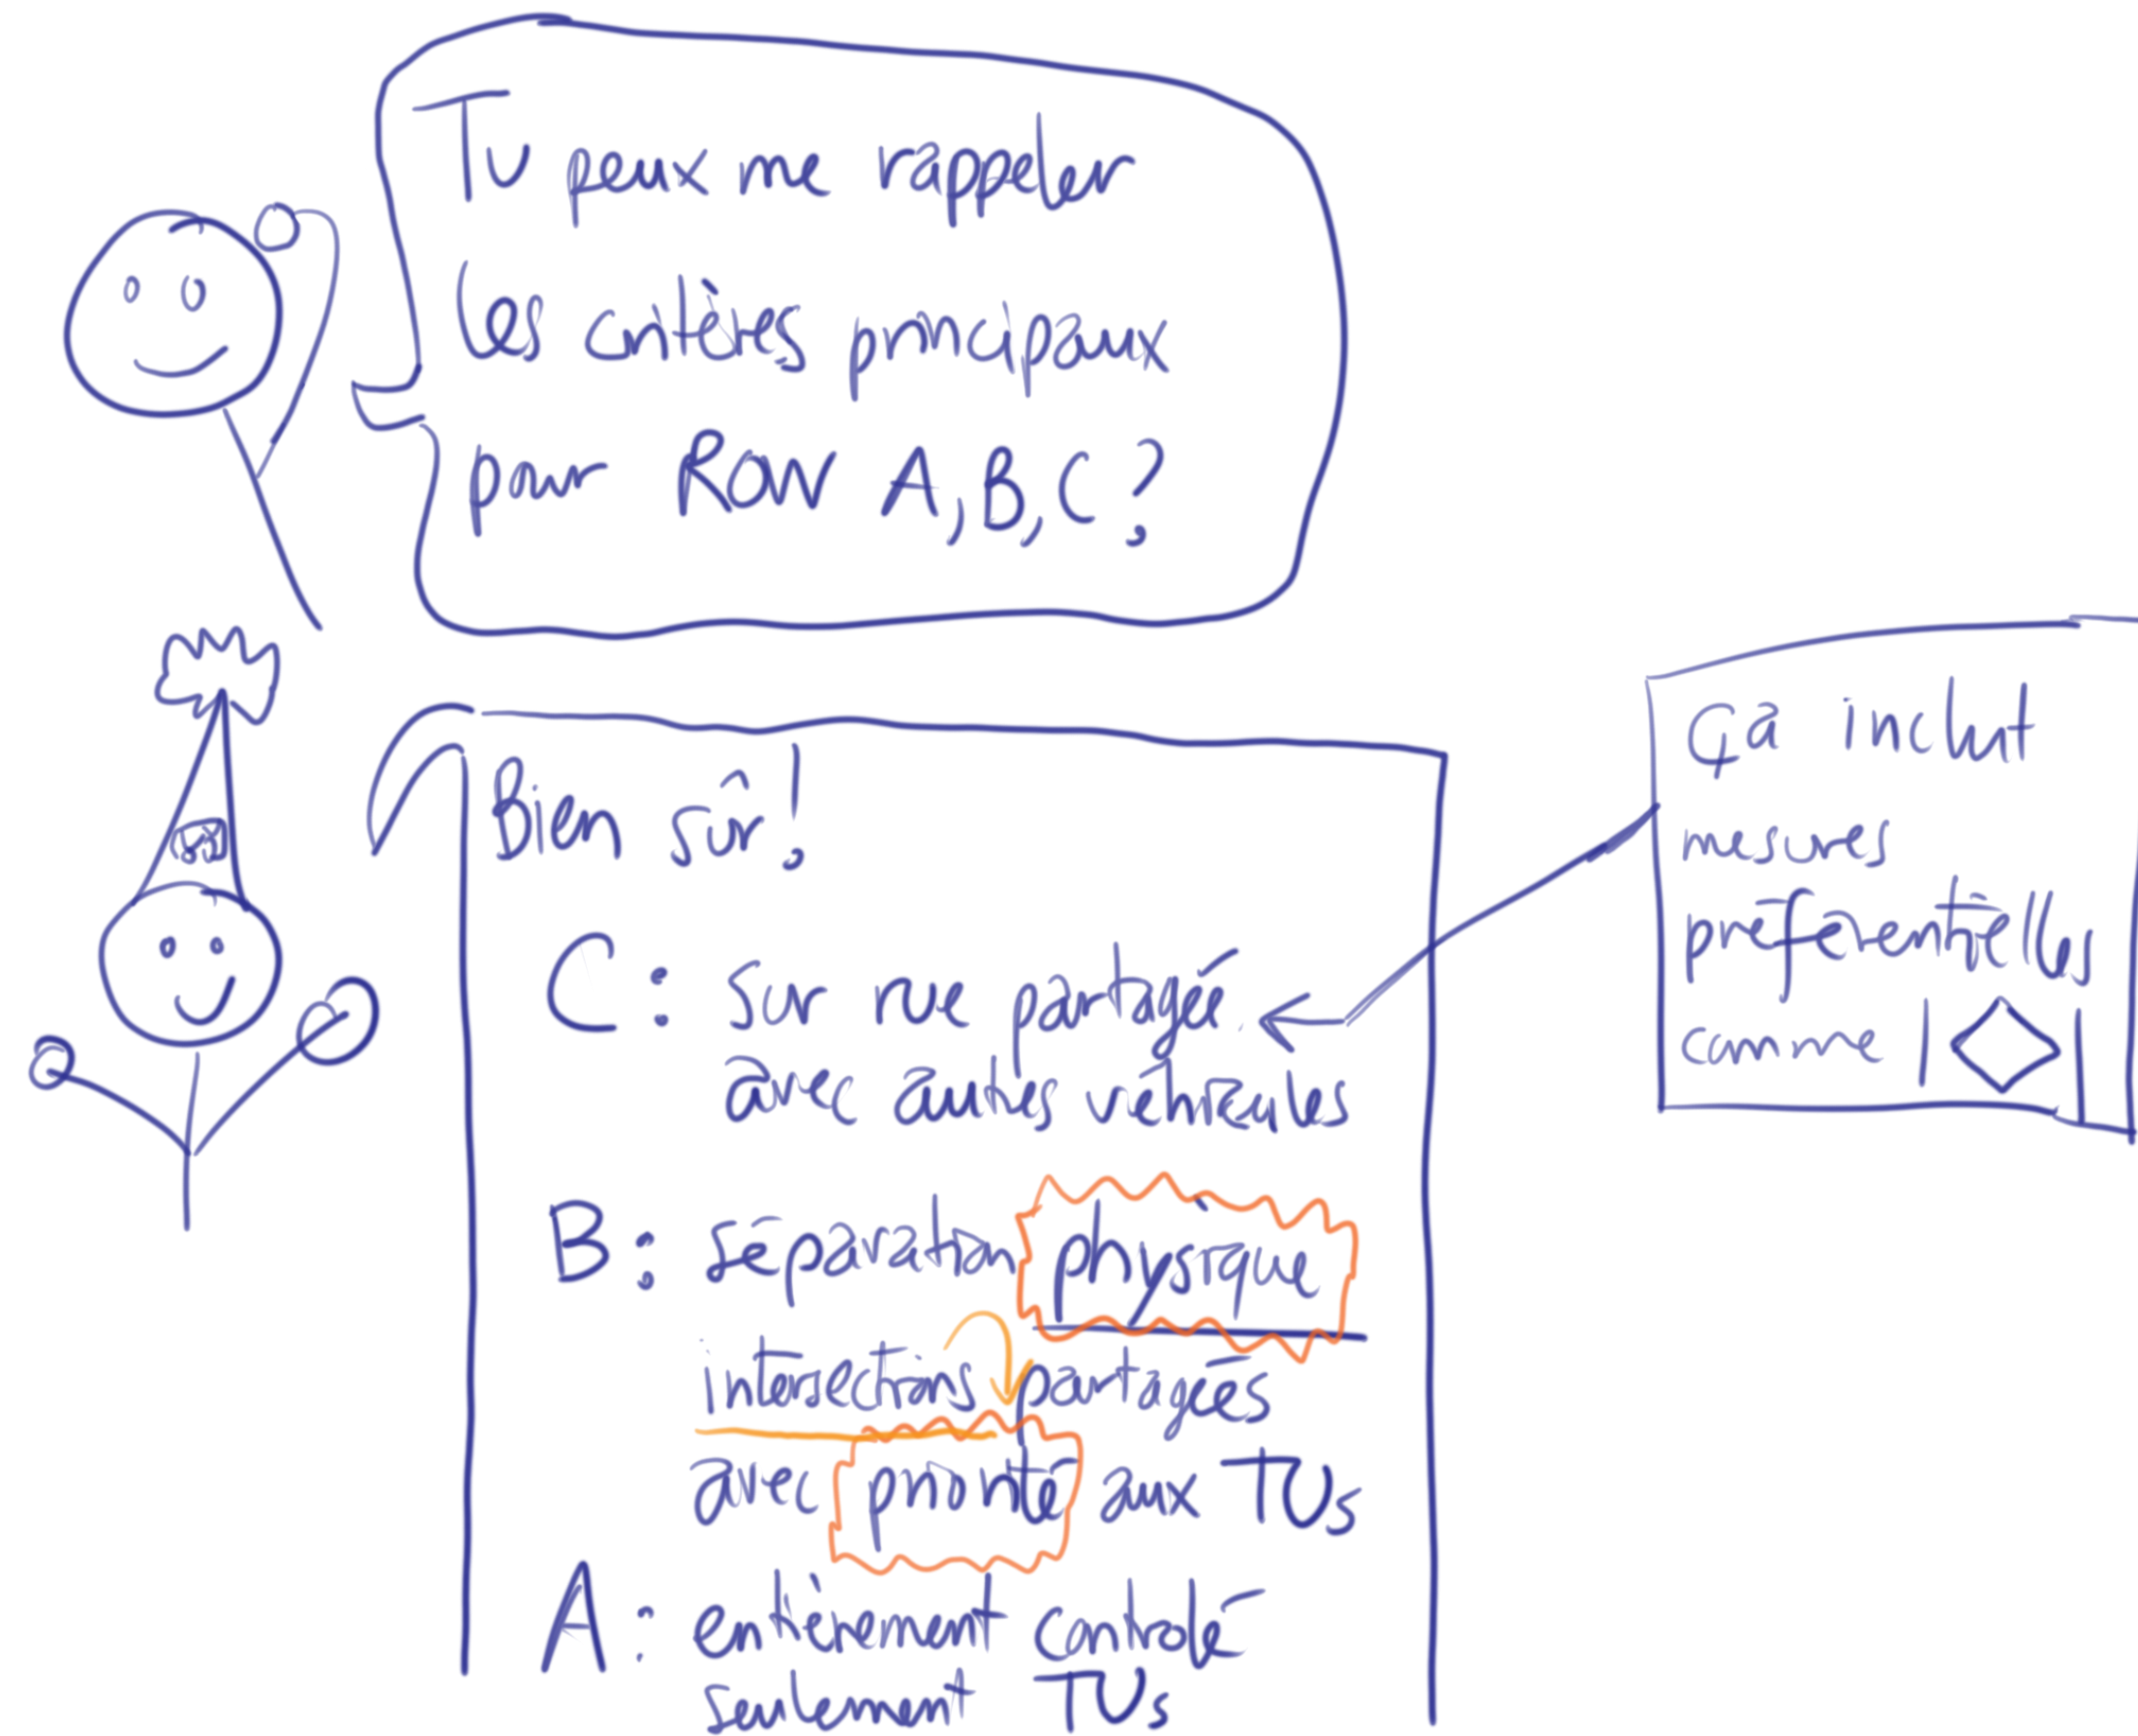 Tu peux me rappeler
les critères principaux
pour ROW A, B, C?
Bien sûr!
C: Sur rue partagé
avec autres véhicules
B: séparation physique
intersections partagées
avec priorité aux TUs
A: entièrement contrôlé
seulement TUs
Ça inclut
mesures
préférentielles
comme